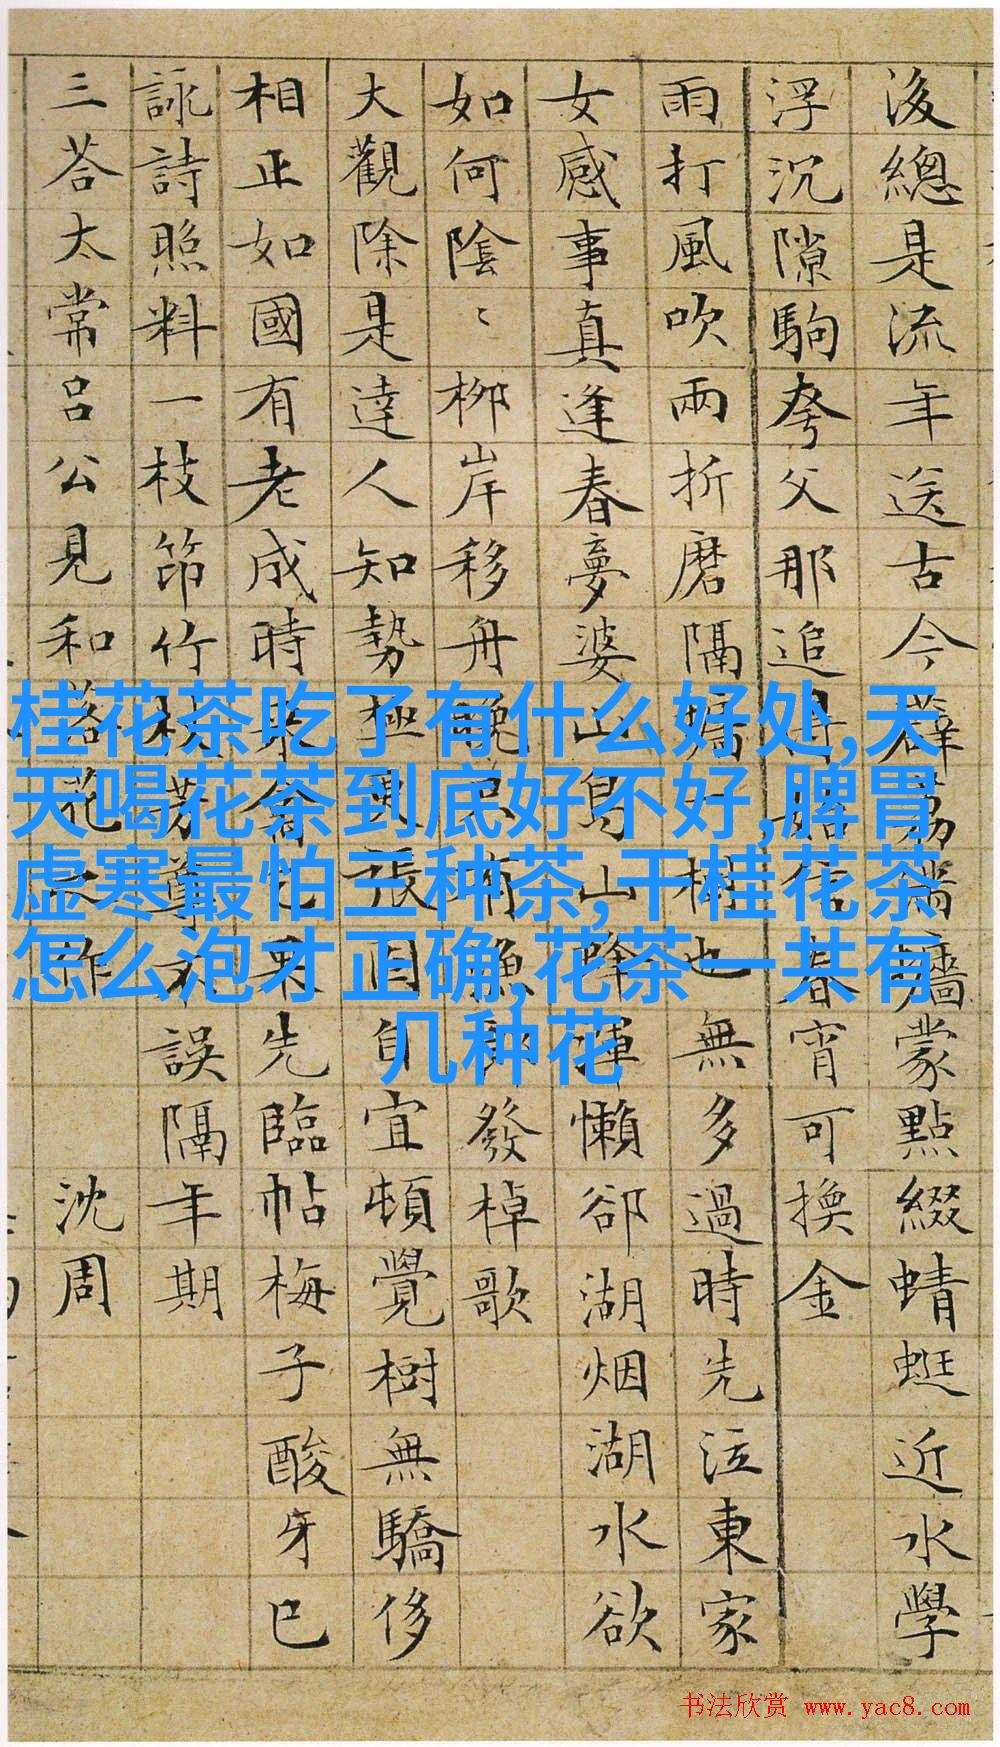 桂花茶吃了有什么好处,天
天喝花茶到底好不好,脾胃
虚寒最怕三种茶,干桂花茶
怎么泡才正确,花茶一共有
几种花
後總是流年送古今薜荔牆蒙點綴蜻蜓近水學
浮沉隙駒夸父那追日信春宵可換金
雨打風吹兩折磨隔一樹也無多過時先泣東家
女感事真逢春夢婆山鳥山蜂揮懶卻湖烟湖水欲
如何陰〻柳岸移舟晚漁郎發棹歌
大觀除是達人知勢極張自宜頓覺樹無驕侈
相正如國有老成時先臨帖梅子酸牙已
詠詩照料一枝筇竹杖芳尊不誤隔年期
三荅太常呂公見和落花之作 沈周
书法欣赏 www.yac8.com